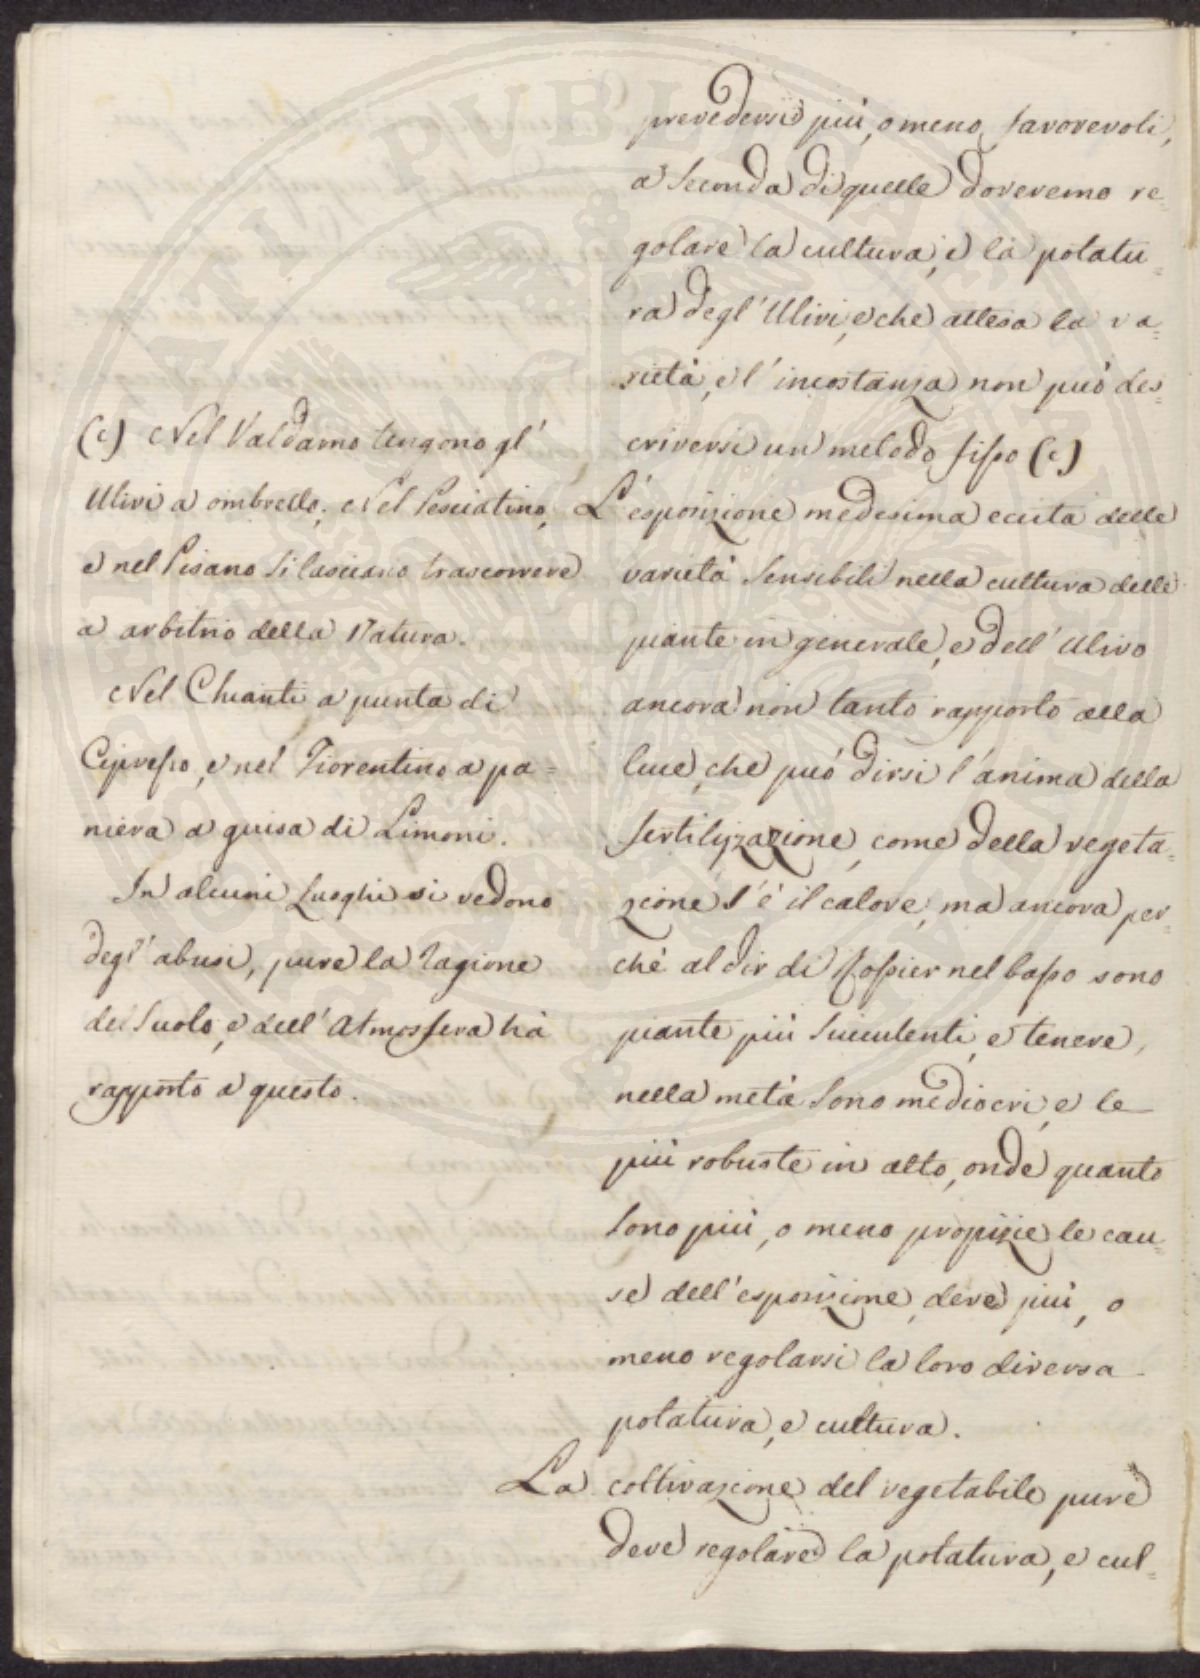 prevedersi più, o meno favorevoli,
a seconda di quelle doveremo re=
golare la cultura, e la potatu=
ra degl' Ulivi, e che attesa la va=
rietà, e l' incostanza non può des=
criversi un metodo fisso (c)
L' esposizione medesima ecita delle
varietà sensibili nella cultura delle
piante in generale, e dell' Ulivo
ancora non tanto rapporto alla
luce, che può dirsi l' anima della
fertilizzazione, come della vegeta=
zione s' è il calore, ma ancora per=
chè al dir di Rossier nel basso sono
piante più succulenti, e tenere,
nella metà sono mediocri, e le
più robuste in alto, onde quanto
sono più, o meno propizie le cau=
se dell' esposizione, deve più, o
meno regolarsi la loro diversa
potatura, e cultura.
La coltivazione del vegetabile pure
deve regolare la potatura, e cul=
(c) Nel Valdarno tengono gl'
Ulivi a ombrello; Nel Pesciatino,
e nel Pisano si lasciano trascorrere
a arbitrio della Natura.
Nel Chianti a punta di
Cipresso, e nel Fiorentino a pa=
niera a guisa di Limoni.
In alcuni Luoghi si vedono
degl' abusi, pure la Ragione
del Suolo, e dell' Atmosfera hà
rapporto a questo.